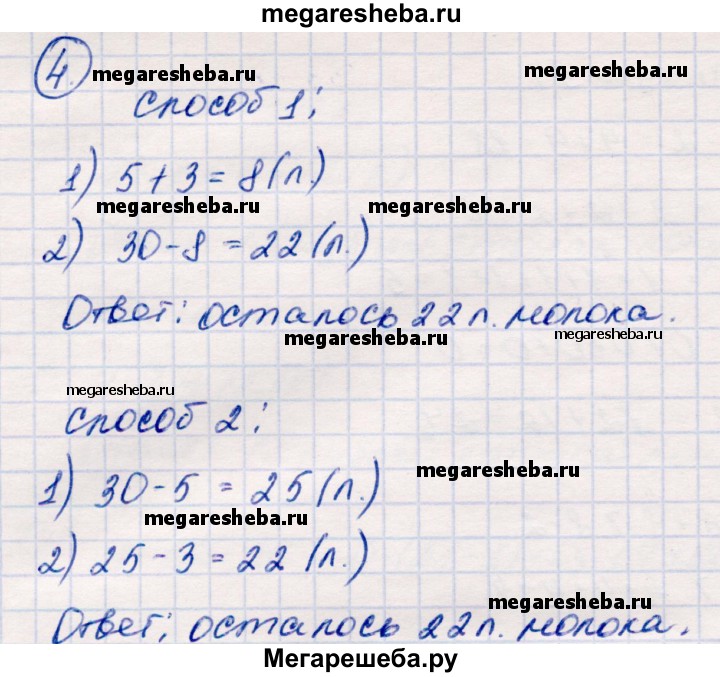 megaresheba.ru
4.
megaresheba.ru
megaresheba.ru
Способ 1:
1) 5 + 3 = 8 (л.)
megaresheba.ru
megaresheba.ru
2) 30 - 8 = 22 (л.)
Ответ: осталось 22 л. молока.
megaresheba.ru
megaresheba.ru
megaresheba.ru
Способ 2:
1) 30 - 5 = 25 (л.)
megaresheba.ru
megaresheba.ru
2) 25 - 3 = 22 (л.)
megaresheba.ru
Ответ: осталось 22 л. молока.
Мегарешеба.ру